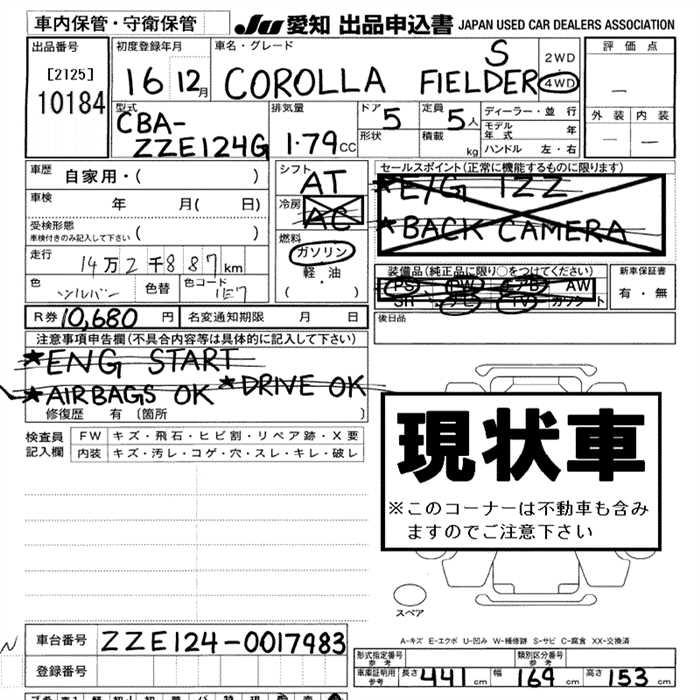 車内保管・守衛保管 JU 愛知 出品申込書 JAPAN USED CAR DEALERS ASSOCIATION
出品番号 初度登録年月 車名・グレード 評価点
[2125] 16 12月 COROLLA FIELDER S 2WD・4WD
10184
型式 排気量 ドア 定員 ディーラー・並行 外装 内装
CBA-ZZE124G 1.79cc 5 5人 モデル年式
形状 積載 kg ハンドル 左・右
車歴 自家用・( ) シフト AT セールスポイント(正常に機能するものに限ります)
車検 年 月( 日) 冷房 AC ★E/G 1ZZ
受検形態 ( ) ★BACK CAMERA
車検付きのみ記入して下さい
走行 14万2千887km 燃料 ガソリン 装備品(純正品に限り○をつけてください) 新車保証書
色 シルバー 色替 色コード 1E7 軽・油 ( ) PS PW エアB AW 有・無
SR ナビ TV カセット
R券 10,680円 名変通知期限 月 日 後日品
注意事項申告欄(不具合内容等は具体的に記入して下さい)
★ENG START
★AIRBAGS OK ★DRIVE OK
修復歴 有 〔箇所 〕
検査員記入欄 FW キズ・飛石・ヒビ割・リペア跡・X要
内装 キズ・汚レ・コゲ・穴・スレ・キレ・破レ
現状車
※このコーナーは不動車も含み
ますのでご注意下さい
スペア
A-キズ E-エクボ U-凹み W-補修跡 S-サビ C-腐食 XX-交換済
車台番号 ZZE124-0017983 形式指定番号 参考 類別区分番号 参考
登録番号 車庫証明用 参考 長さ 441cm 幅 169cm 高さ 153cm